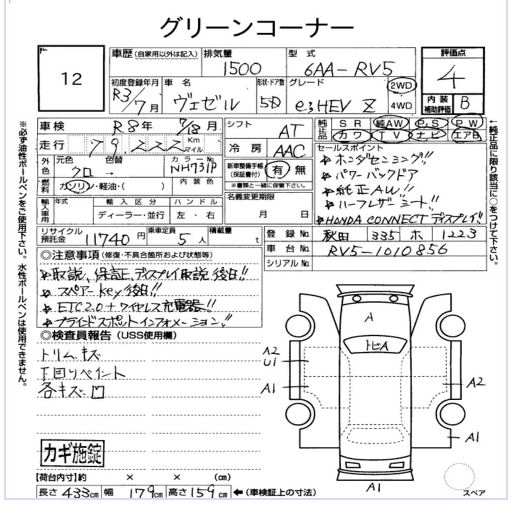 グリーンコーナー
12
車歴 (自家用以外は記入)
排気量 1500
型式 6AA-RV5
評価点 4
内装補助評価 B
初度登録年月 R3/7月
車名 ヴェゼル
形状・ドア数 5D
グレード e:HEV Z
2WD
4WD
車検 R8年 7/18月
シフト AT
純正品 SR 純AW P.S PW
カワ TV ナビ エアB
走行 79,222 Km マイル
冷房 AAC
セールスポイント
外色 元色 クロ 色替 → カラーNo. NH731P
新車整備手帳(保証書付) 有 無
※書類と一緒に保管下さい。
燃料 ガソリン・軽油・( )
内装色
名義変更期限 月 日
輸入車用 年 輸入区分 ディーラー・並行 ハンドル 左・右
☆ホンダセンシング!!
☆パワーバックドア
☆純正AW!!
☆ハーフレザーシート!!
☆HONDA CONNECTディスプレイ!!
リサイクル預託金 11740円
乗車定員 5人
積載量 t
登録No 秋田 335 ホ 1223
車台No. RV5-1010856
シリアルNo.
◎注意事項 (修復・不具合箇所および状態等)
☆取説、保証、ディスプレイ取説 後日!!
☆スペアーkey後日!!
☆ETC2.0+ワイヤレス充電器!!
☆ブラインドスポットインフォメーション!!
◎検査員報告 (USS使用欄)
トリムキズ
下回りペイント
各キズ凹
カギ施錠
A
トビA
A2
U1
A1
A2
A1
A1
スペア
【荷台内寸】約 × × (cm)
長さ 433cm 幅 179cm 高さ 159cm ←(車検証上の寸法)
※必ず油性ボールペンをご使用下さい。水性ボールペンは使用できません。
←純正品に限り該当に○をつけて下さい。